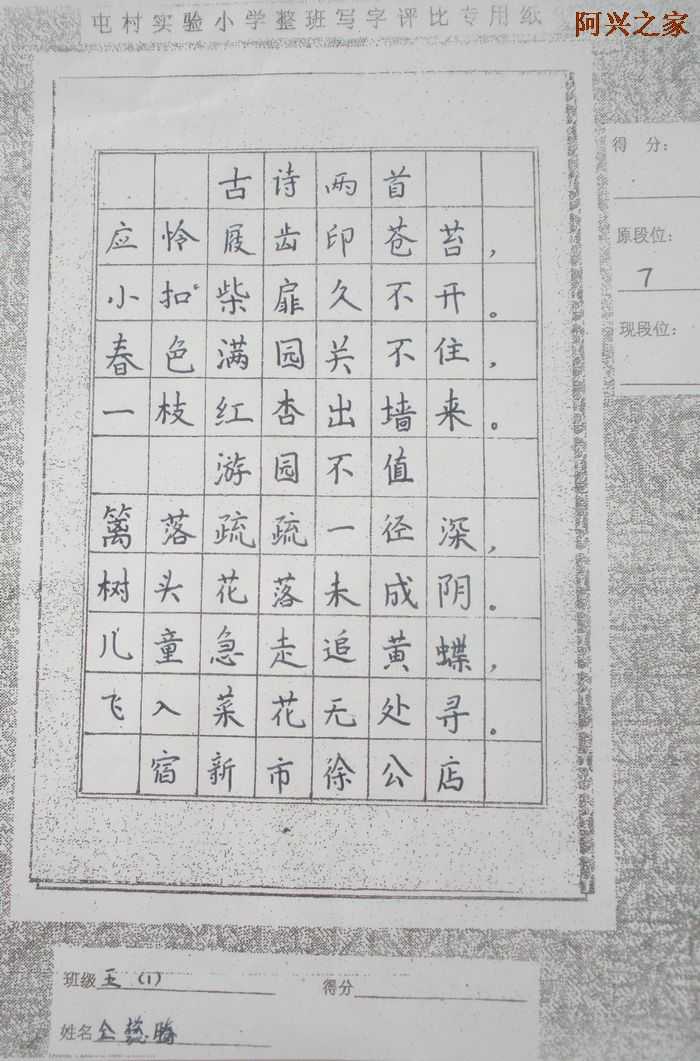 屯村实验小学整班写字评比专用纸
阿兴之家
得 分：
原段位：
7
现段位：
古诗两首
应怜屐齿印苍苔，
小扣柴扉久不开。
春色满园关不住，
一枝红杏出墙来。
游园不值
篱落疏疏一径深，
树头花落未成阴。
儿童急走追黄蝶，
飞入菜花无处寻。
宿新市徐公店
班级 五（1） 得分
姓名